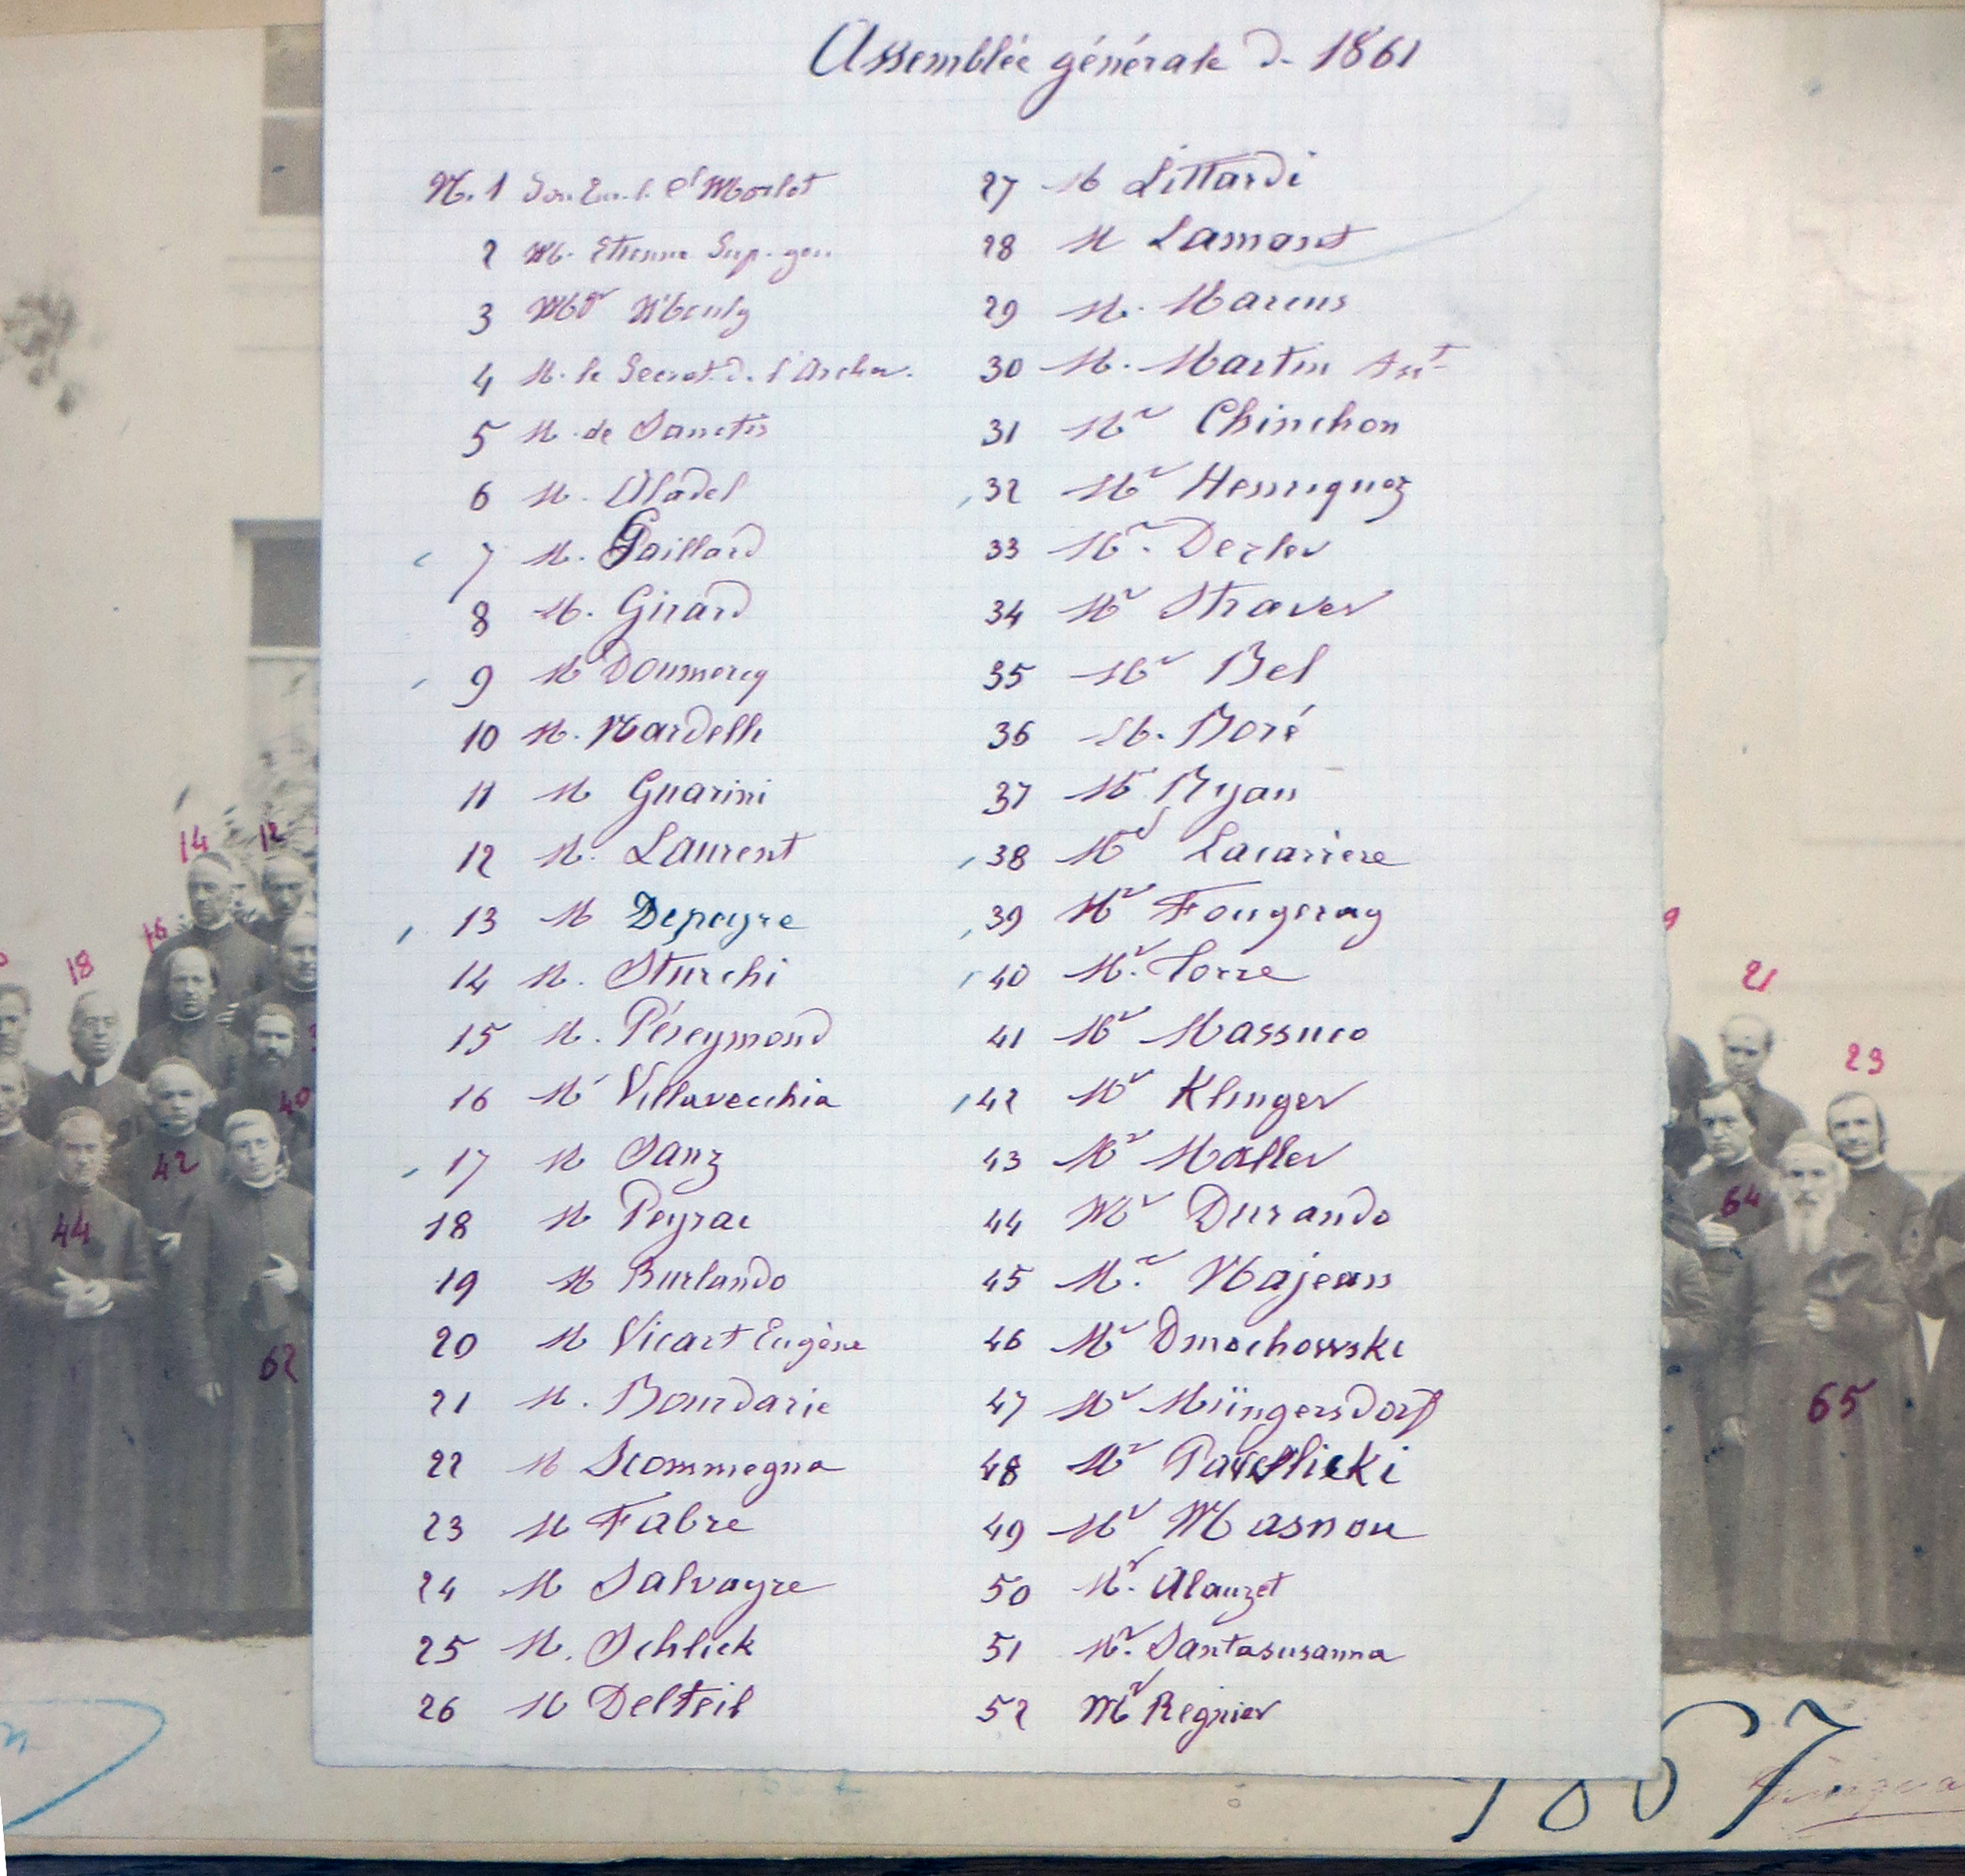 Assemblée générale d. 1861
N. 1 Son Em. l. Cl Morlot
2 M. Etienne Sup. gen.
3 Mgr Mouly
4 M. le Secret. d. l'Archev.
5 M. de Sanctis
6 M. Aladel
7 M. Gaillard
8 M. Girard
9 M Doumercq
10 M. Mardelli
11 M Guarini
12 M. Laurent
13 M Depeyre
14 M. Sturchi
15 M. Péreymond
16 M Villavecchia
17 M Sanz
18 M Peyrac
19 M Burlando
20 M Vicart Eugène
21 M. Bourdarie
22 M Scommegna
23 M Fabre
24 M Salvayre
25 M. Schlick
26 M Delteil
27 M Littardi
28 M Lamant
29 M. Marcus
30 M. Martin Ant
31 Mr Chinchon
32 Mr Henriquez
33 Mr. Derler
34 Mr Straver
35 Mr Bel
36 M. Boré
37 M Ryan
38 Mr Lacarriere
39 Mr Fougeray
40 Mr. Torre
41 Mr Massuco
42 Mr Klinger
43 Mr Maller
44 Mr Durando
45 Mr. Majeau
46 Mr Dmochowski
47 Mr Müngersdorf
48 Mr Pawlicki
49 Mr Masnou
50 Mr. Alauzet
51 Mr. Santasusanna
52 Mr Regnier
14 12
16
18
40
42
44
62
9
21
23
64
65
1867